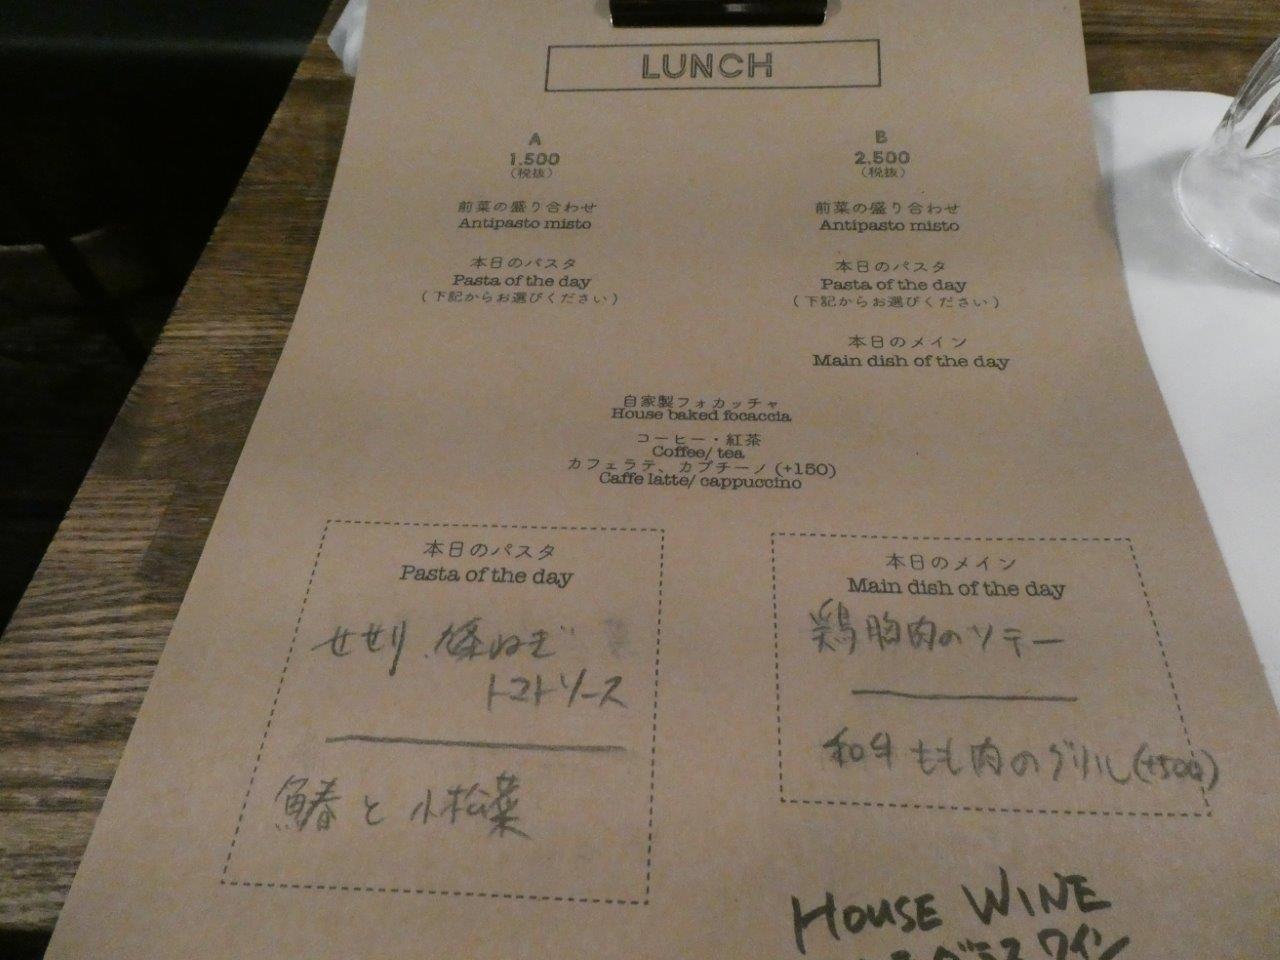 LUNCH
A
1.500
(税抜)
前菜の盛り合わせ
Antipasto misto
本日のパスタ
Pasta of the day
(下記からお選びください)
B
2.500
(税抜)
前菜の盛り合わせ
Antipasto misto
本日のパスタ
Pasta of the day
(下記からお選びください)
本日のメイン
Main dish of the day
自家製フォカッチャ
House baked focaccia
コーヒー・紅茶
Coffee/ tea
カフェラテ、カプチーノ (+150)
Caffe latte/ cappuccino
本日のパスタ
Pasta of the day
せせり 九条ねぎ
トマトソース
鰆と小松菜
本日のメイン
Main dish of the day
鶏胸肉のソテー
和牛もも肉のグリル(+500)
HOUSE WINE
グラスワイン